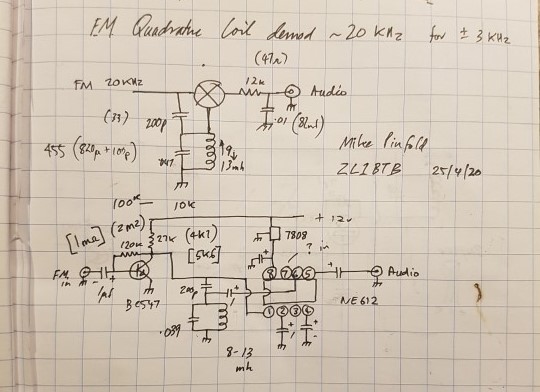 FM Quadrature Coil demod ~20 KHz for ± 3 KHz
(47n)
FM 20KHz
12k
Audio
(33)
200p
.01 (82nf)
455 (820p + 100p)
.047
9
13mh
Mike Pinfold
ZL1BTB 25/4/20
100k — 10k
+ 12v
[1ma] (2m2)
120k
27k
(4k7)
[5k6]
7808
? in
FM in
1µf
BC547
8 7 6 5
Audio
NE612
200p
1 2 3 4
.039
8-13
mh